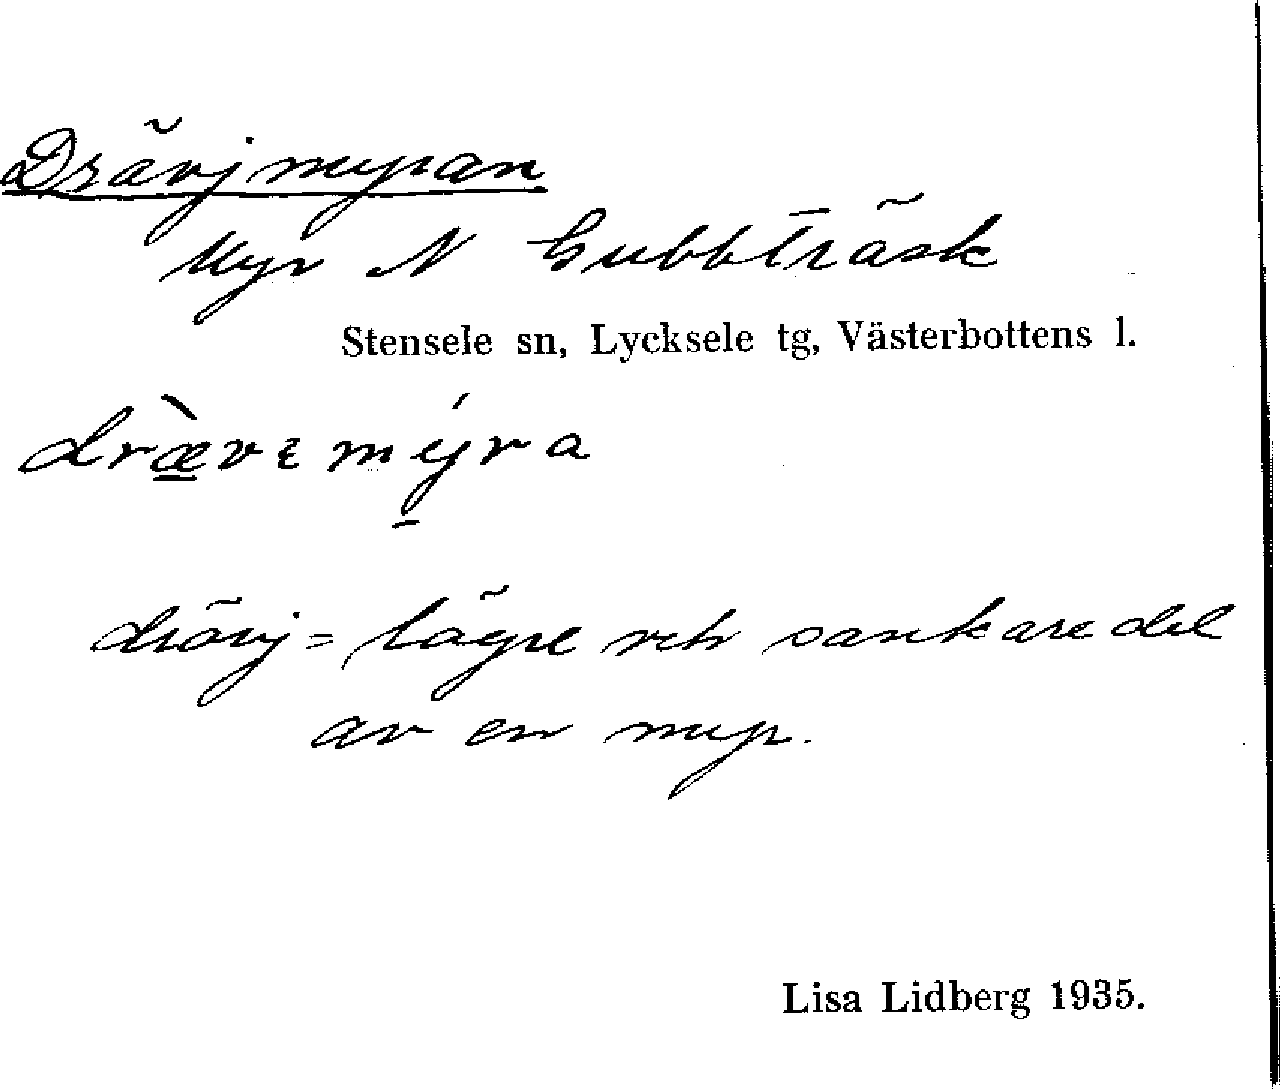 Drävjmyran
Myr N Gubbträsk
Stensele sn, Lycksele tg, Västerbottens l.
dræ̲̀vɛ mý̲ra
drävj = lägre och sankare del
av en myr.
Lisa Lidberg 1935.